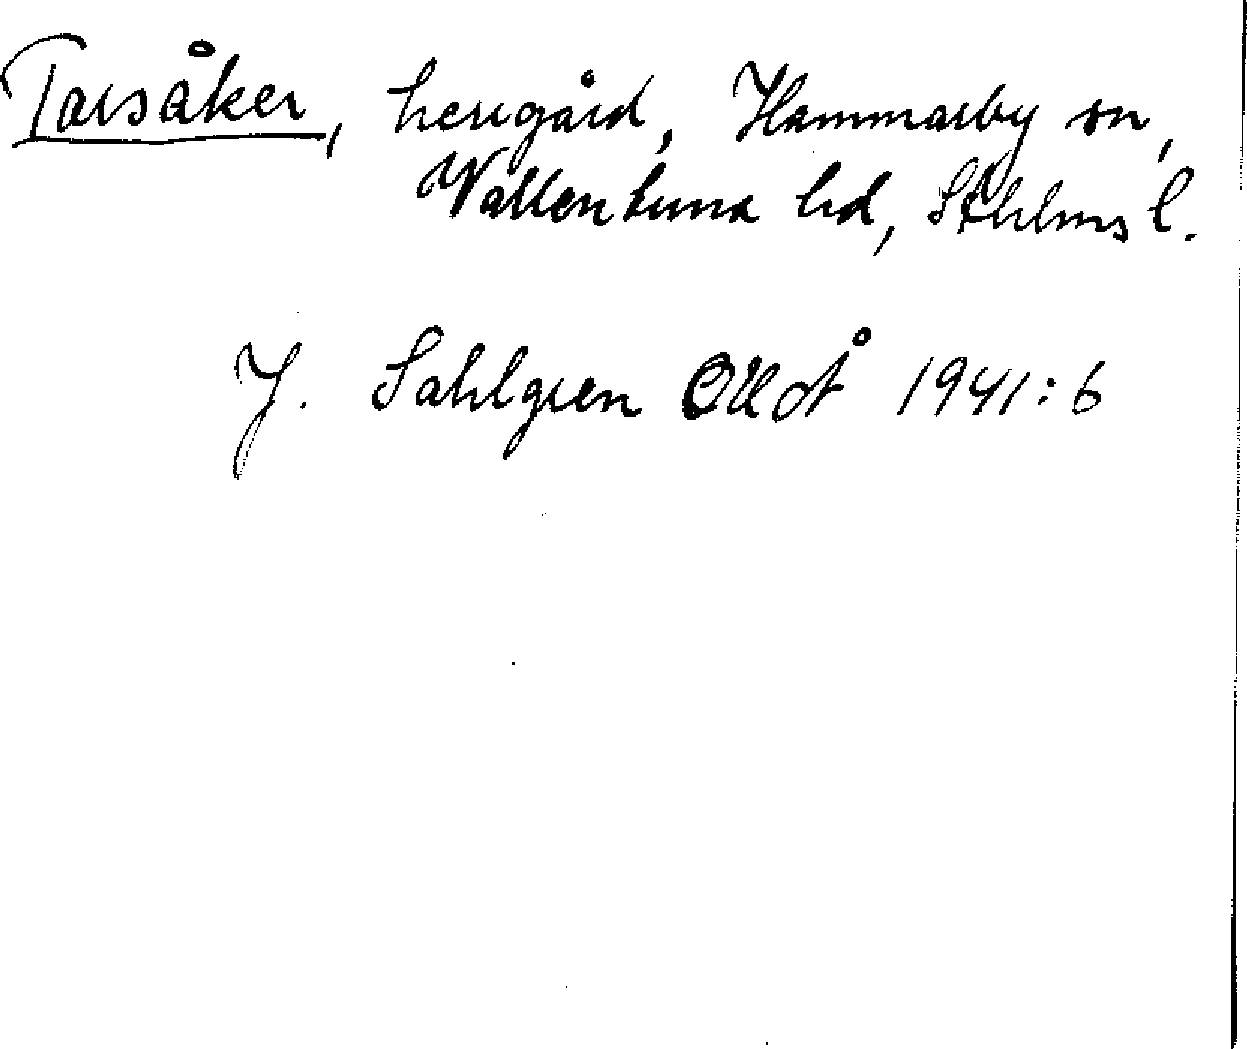 Torsåker, herrgård, Hammarby sn,
Vallentuna hd, Sthlms l.
J. Sahlgren OUÅ 1941:6